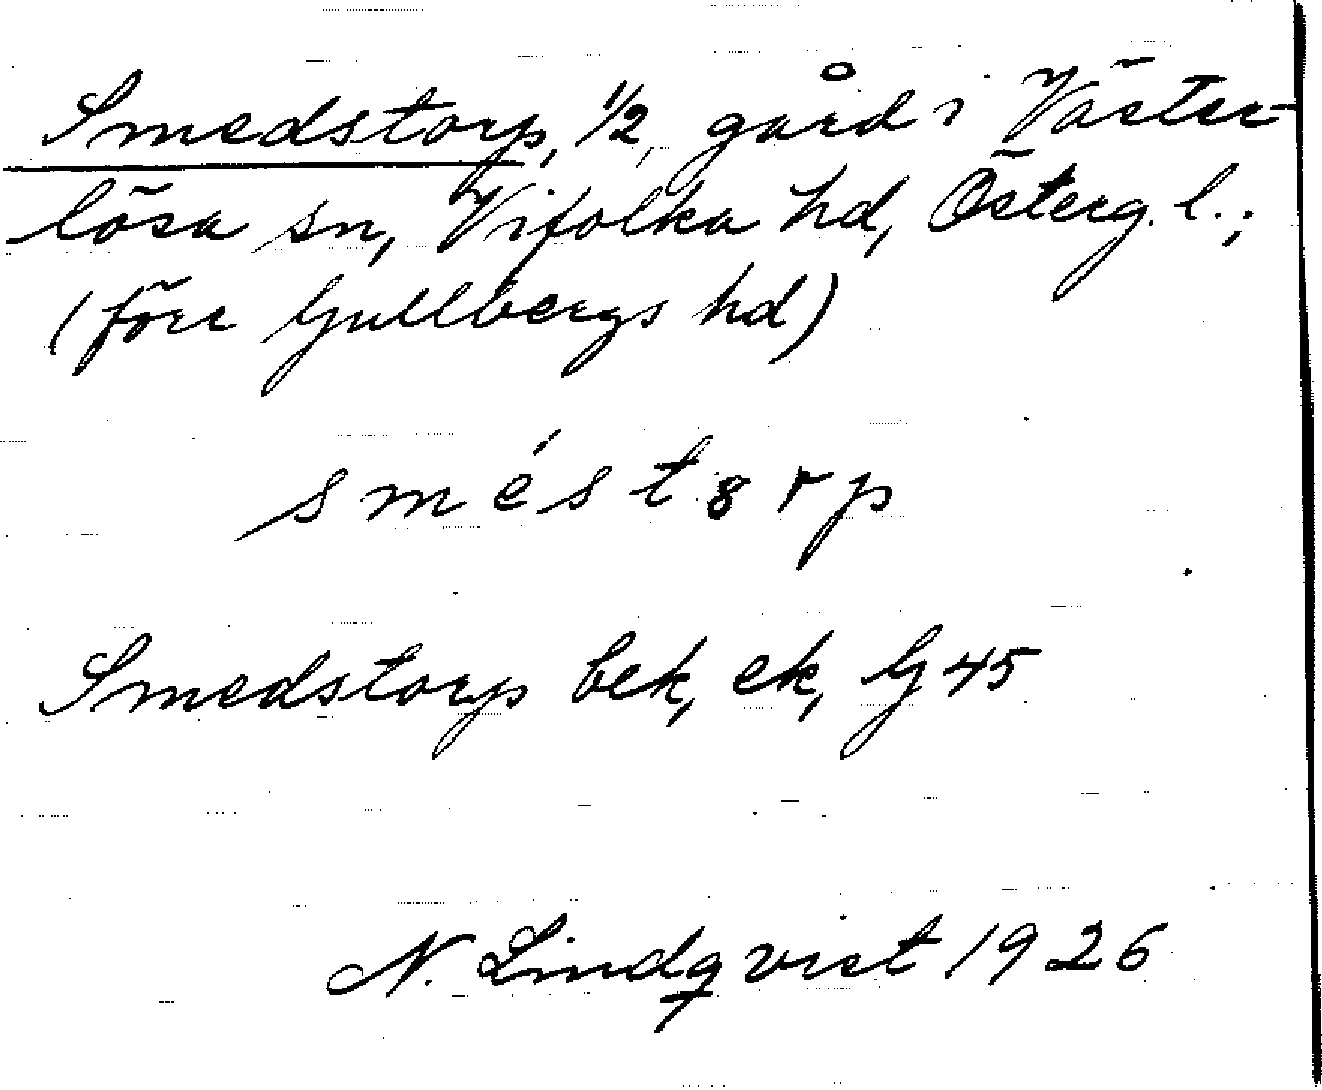 Smedstorp, 1/2, gård i Väster-
lösa sn, Vifolka hd, Österg. l.;
(förr Gullbergs hd)
sméstȣrp
Smedstorp bek, ek, Gj 45
N. Lindqvist 1926